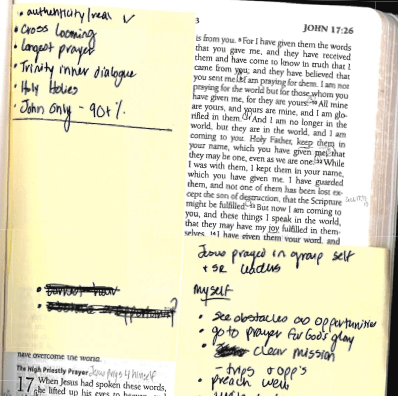 • authenticity/real ✓
• Cross looming
• Longest prayer
• Trinity inner dialogue
• Holy Holies
• John Only - 90+%
have overcome the world.
The High Priestly Prayer Jesus prays 4 himself
17 When Jesus had spoken these words,
he lifted up his eyes to heaven, and
3
JOHN 17:26
is from you. 8 For I have given them the words
that you gave me, and they have received
them and have come to know in truth that I
came from you; and they have believed that
you sent me. 9 I am praying for them. I am not
praying for the world but for those whom you
have given me, for they are yours. 10 All mine
are yours, and yours are mine, and I am glo-
rified in them. 11 And I am no longer in the
world, but they are in the world, and I am
coming to you. Holy Father, keep them in
your name, which you have given me, that
they may be one, even as we are one. 12 While
I was with them, I kept them in your name,
which you have given me. I have guarded
them, and not one of them has been lost ex-
cept the son of destruction, that the Scripture
might be fulfilled. 13 But now I am coming to
you, and these things I speak in the world,
that they may have my joy fulfilled in them-
selves. 14 I have given them your word, and
Jesus prayed in group self
+ SR leaders
myself
• see obstacles as opportunities
• go to prayer for God's glory
• clear mission
- trips + opp's
• preach well